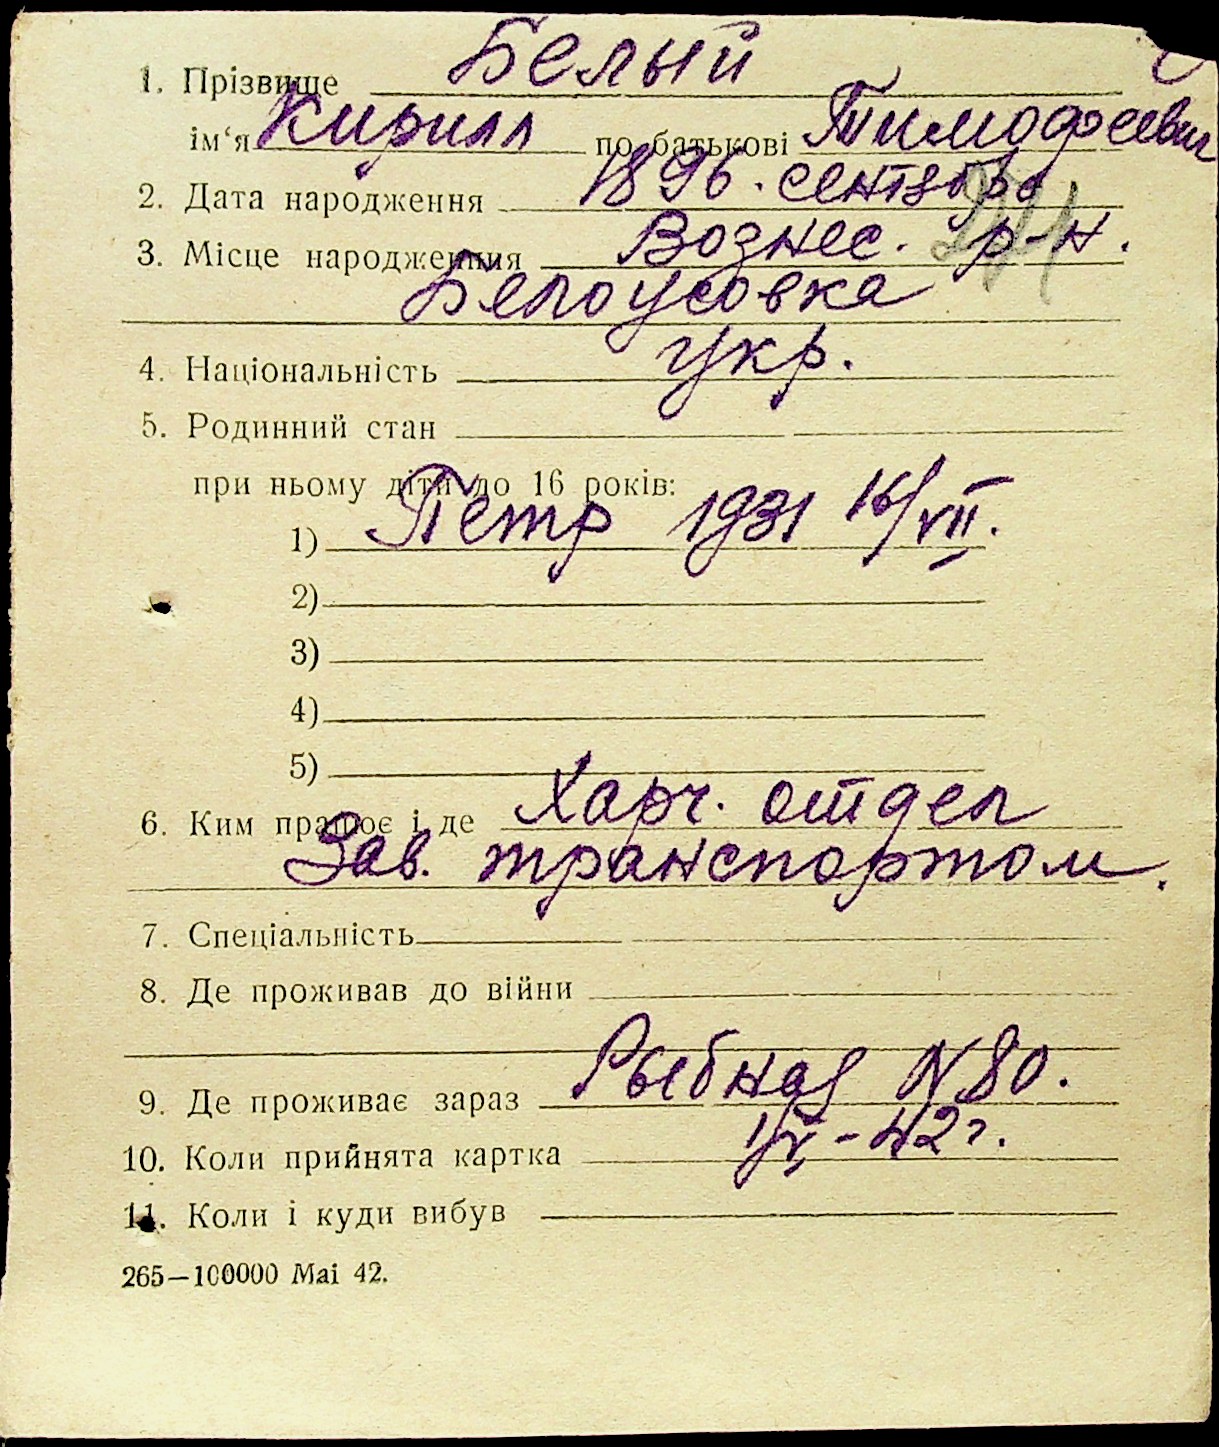 1. Прізвище Белый
ім‘я Кирилл по батькові Тимофеевич
2. Дата народження 1896. сентября
3. Місце народження Вознес. р-н.
Белоусовка
4. Національність укр.
5. Родинний стан
при ньому діти до 16 років:
1) Петр 1931 16/VII.
2)
3)
4)
5)
6. Ким працює і де Харч. отдел
Зав. транспортом.
7. Спеціальність
8. Де проживав до війни
9. Де проживає зараз Рыбная N 80.
10. Коли прийнята картка - 42 г.
11. Коли і куди вибув
265—100000 Mai 42.